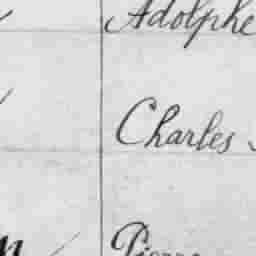 Adolphe
Charles
Pierre